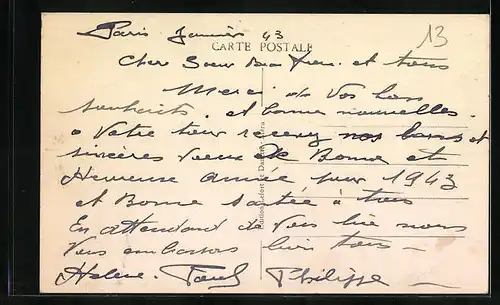 Paris Janvier 43
13
CARTE POSTALE
Cher Soeur Beau frere et tous
Merci de vos bons
souhaits et bonne nouvelles
a Votre tour recevez nos bons et
sincères voeux de Bonne et
Heureuse année pour 1943
et Bonne santée à tous
En attendant de vous lire nous
Vous embrassons bien tous
Helene Paul Philippe